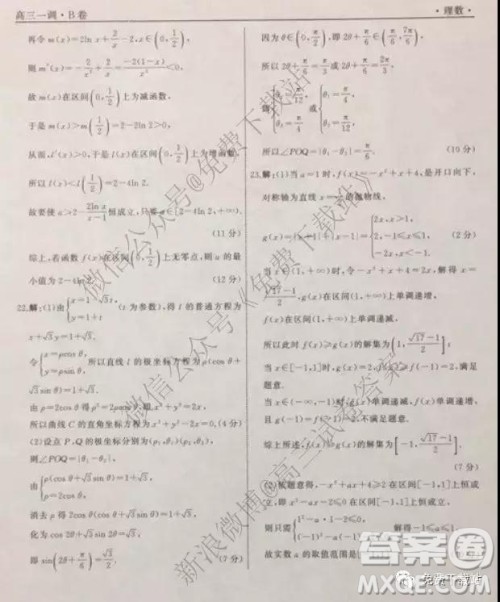 高三一调·B卷
·理数·
再令m(x)=2ln x+2/x-2,x∈(0,1/2),
则m'(x)=-2/x²+2/x=-2(1-x)/x²<0,
故m(x)在区间(0,1/2)上为减函数,
于是m(x)>m(1/2)=2-2ln 2>0,
从而,l'(x)>0,于是l(x)在区间(0,1/2)上为增函数,
所以l(x)<l(1/2)=2-4ln 2,
故要使a>2-2ln x/(x-1)恒成立,只要a∈[2-4ln 2,+∞),
(11分)
综上,若函数f(x)在(0,1/2)上无零点,则a的最
小值为2-4ln 2.
(12分)
22.解:(1)由
(t为参数),得l的普通方程为
x+√3y=1+√3,
令{x=ρcos θ, y=ρsin θ,所以直线l的极坐标方程为ρ(cos θ+
√3sin θ)=1+√3,
由ρ=2cos θ得ρ²=2ρcos θ,即x²+y²=2x,
所以曲线C的直角坐标方程为x²+y²-2x=0.(4分)
(2)设点P,Q的极坐标分别为(ρ₁,θ₁),(ρ₂,θ₂),
则∠POQ=|θ₁-θ₂|,
由{ρ(cos θ+√3sin θ)=1+√3, ρ=2cos θ,
消去ρ得2cos θ(cos θ+√3sin θ)=1+√3,
化为cos 2θ+√3sin 2θ=√3,
即sin(2θ+π/6)=√3/2,
(7分)
因为θ∈(0,π/2),即2θ+π/6∈(π/6,7π/6),
所以2θ+π/6=π/3或2θ+π/6=2π/3,
即{θ₁=π/12, θ₂=π/4,或{θ₁=π/4, θ₂=π/12,
所以∠POQ=|θ₁-θ₂|=π/6.
(10分)
23.解:(1)当a=1时,f(x)=-x²+x+4,是开口向下,
对称轴为直线x=1/2的抛物线,
g(x)=|x+1|+|x-1|={2x,x>1, 2,-1≤x≤1, -2x,x<-1,
(2分)
当x∈(1,+∞)时,令-x²+x+4=2x,解得x=
(√17-1)/2,
g(x)在区间(1,+∞)上单调递增,
f(x)在区间(1,+∞)上单调递减,
所以此时f(x)≥g(x)的解集为(1,(√17-1)/2];
当x∈[-1,1]时,g(x)=2,f(x)≥f(-1)=2,
当x∈(-∞,-1)时,g(x)单调递减,f(x)单调递增,
且g(-1)=f(-1)=2,不满足题意,
综上所述,f(x)≥g(x)的解集为[-1,(√17-1)/2].
(7分)
(2)依题意得,-x²+ax+4≥2在区间[-1,1]恒成立,
即x²-ax-2≤0在区间[-1,1]上恒成立,
则只需
解得-1≤a≤1,
故实数a的取值范围是
微信公众号@免费下载站
微信公众号《免费下载站》
新浪微博@高三试卷答案
答案圈
MXQE.COM
免费下载站